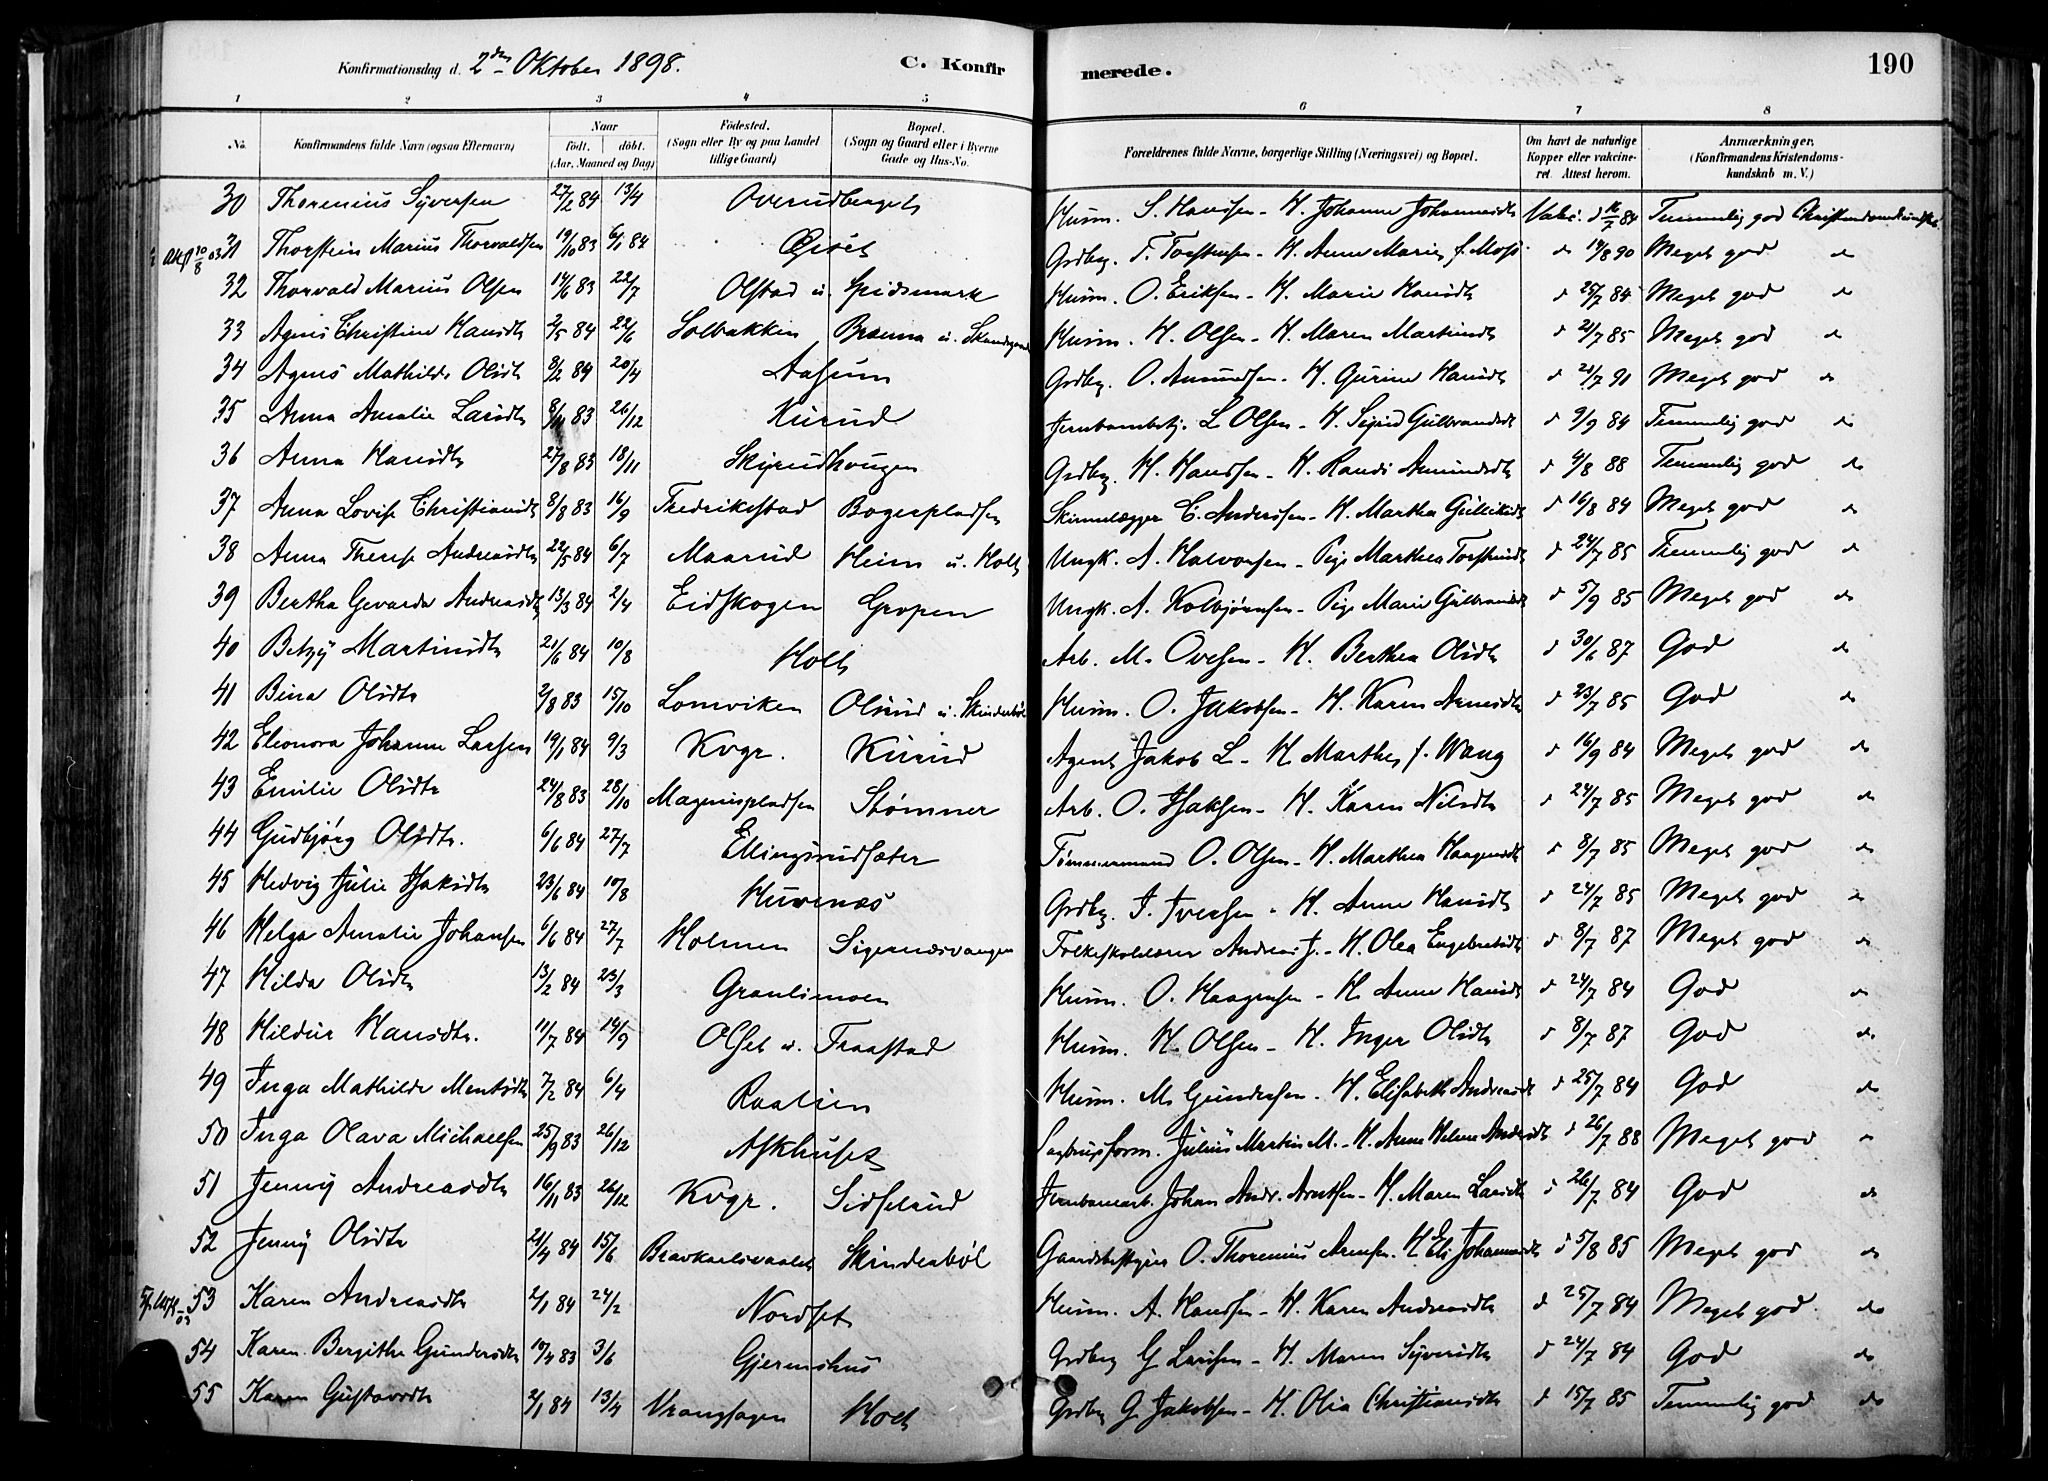 Konfirmationsdag d. 2den Oktober 1898. C. Konfirmerede. 190
1 2 3 4 5 6 7 8
No. Konfirmandens fulde Navn (ogsaa Efternavn) Naar født. døbt. (Aar, Maaned og Dag) Fødested. (Sogn eller By og paa Landet tillige Gaard) Bopæl. (Sogn og Gaard eller i Byerne Gade og Hus-No. Forældrenes fulde Navne, borgerlige Stilling (Næringsvei) og Bopæl. Om havt de naturlige Kopper eller vakcineret. Attest herom. Anmærkninger. (Konfirmandens Kristendomskundskab m. V.)
30 Thorenius Syversen 27/2 84 13/4 Overudberget Husm. S. Hansen - H. Johanne Johannesdtr Vakc. d 84 Temmelig god Christendomskundskb.
31 Thorstein Marius Thorvaldsen 19/10 83 6/1 84 Gjøset Grdbg. T. Torstensen - H. Anne Marie f. Moss d 14/8 90 Meget god do
32 Thorvald Marius Olsen 14/6 83 22/7 Olstad u. Spidsmark Husm. O. Eriksen - H. Marie Hansdtr d 25/7 84 Meget god do
33 Agnes Christine Hansdtr 2/5 84 22/6 Solbakken Brænna u. Husm. H. Olsen - H. Maren Martinsdtr d 21/7 85 Meget god do
34 Agnes Mathilde Olsdtr 8/2 84 20/4 Aasum Grdbg. O. Amundsen - H. Gurine Hansdtr d 21/7 91 Meget god do
35 Anna Amalie Larsdtr 8/11 83 26/12 Kurud Jernbanebetj. L Olsen - H. Sigrid Gulbrandsdt d 9/9 84 Temmelig god do
36 Anna Hansdtr 27/8 83 18/11 Skyrudhaugen Grdbg. H. Hansen - H. Randi Amundsdtr d 4/8 88 Temmelig god do
37 Anna Lovise Christiansdtr 8/8 83 16/9 Fredrikstad Bogerpladsen Skinnelægger C. Andersen - H. Martha Gulliksdt d 16/8 84 Meget god do
38 Anna Therese Andreasdtr 22/5 84 6/7 Maarud Heim u. Holt Ungk. A. Halvorsen - Pige Marthea Torstensdt d 24/7 85 Temmelig god do
39 Bertha Gevarda Andreasdtr 13/3 84 2/4 Eidskogen Gropen Ungk. A. Kolbjørnsen - Pige Marie Gulbrandsdt d 5/9 85 Meget god do
40 Betzy Martinsdtr 21/6 84 10/8 Holt Arb. M. Ovesen - H. Berthea Olsdtr d 30/6 87 God do
41 Bina Olsdtr 2/8 83 15/10 Lomviken Olsrud u. Skinderbøl Husm. O. Jakobsen - H. Karen Arnesdtr d 23/7 85 God do
42 Eleonora Johanne Larsen 19/1 84 9/3 Kvgr. Kurud Agent Jakob L - H Marthe f. Wang d 16/9 84 Meget god do
43 Emilie Olsdtr 24/8 83 28/10 Magnuspladsen Stømner Arb. O. Isaksen - H. Karen Nilsdtr d 24/7 85 Meget god do
44 Gudbjørg Olsdtr. 6/6 84 27/7 Ellingsrudsæter Tømmermand O. Olsen - H. Marthea Haagensdt d 8/7 85 Meget god do
45 Hedvig Julie Isaksdtr 23/6 84 10/8 Huvenæs Grdbg. I. Iversen - H. Anne Hansdtr d 24/7 85 Meget god do
46 Helga Amalie Johansen 6/6 84 27/7 Holmen Sigernæsvangen Folkeskolelærer Andreas J. - H. Olea Engebretsdt d 8/7 87 Meget god do
47 Hilda Olsdtr 13/2 84 23/3 Granlimoen Husm. O. Haagensen - H. Anne Hansdt d 24/7 84 God do
48 Hildur Hansdtr. 11/7 84 14/9 Olset u. Fraastad Husm. H. Olsen - H. Inger Olsdtr d 8/7 87 God do
49 Inga Mathilde Mentsdtr 7/2 84 6/4 Raalien Husm. M. Gundersen - H. Elisabeth Andreasdt d 25/7 84 God do
50 Inga Olava Michaelsen 25/9 83 26/12 Askhuset Sagbrugsform. Julius Martin M. - H. Anne Helene Andersdt d 26/7 88 Meget god do
51 Jenny Andreasdtr 16/11 83 26/12 Kvgr. Sidselrud Jernbanearb. Johan Andr. Arntsen - H. Maren Larsdtr d 26/7 84 God do
52 Jenny Olsdtr 21/4 84 15/6 Skinderbøl Gaardsbestyrer O. Thorenius Arnesen. H Eli Johannesdtr d 5/8 85 Meget god do
53 Karen Andreasdtr 2/1 84 24/2 Nordset Husm. A. Hansen - H. Karen Andreasdtr d 25/7 84 Meget god. do
54 Karen Bergithe Gundersdtr 19/4 83 3/6 Gjermshus Grdbg G Larsen - H. Maren Syversdtr d 24/7 84 God do
55 Karen Gustavsdtr 2/1 84 13/4 Vranghagen Holt Grdbg G. Jakobsen - H. Olia Christiansdtr d 15/7 85 Temmelig god do